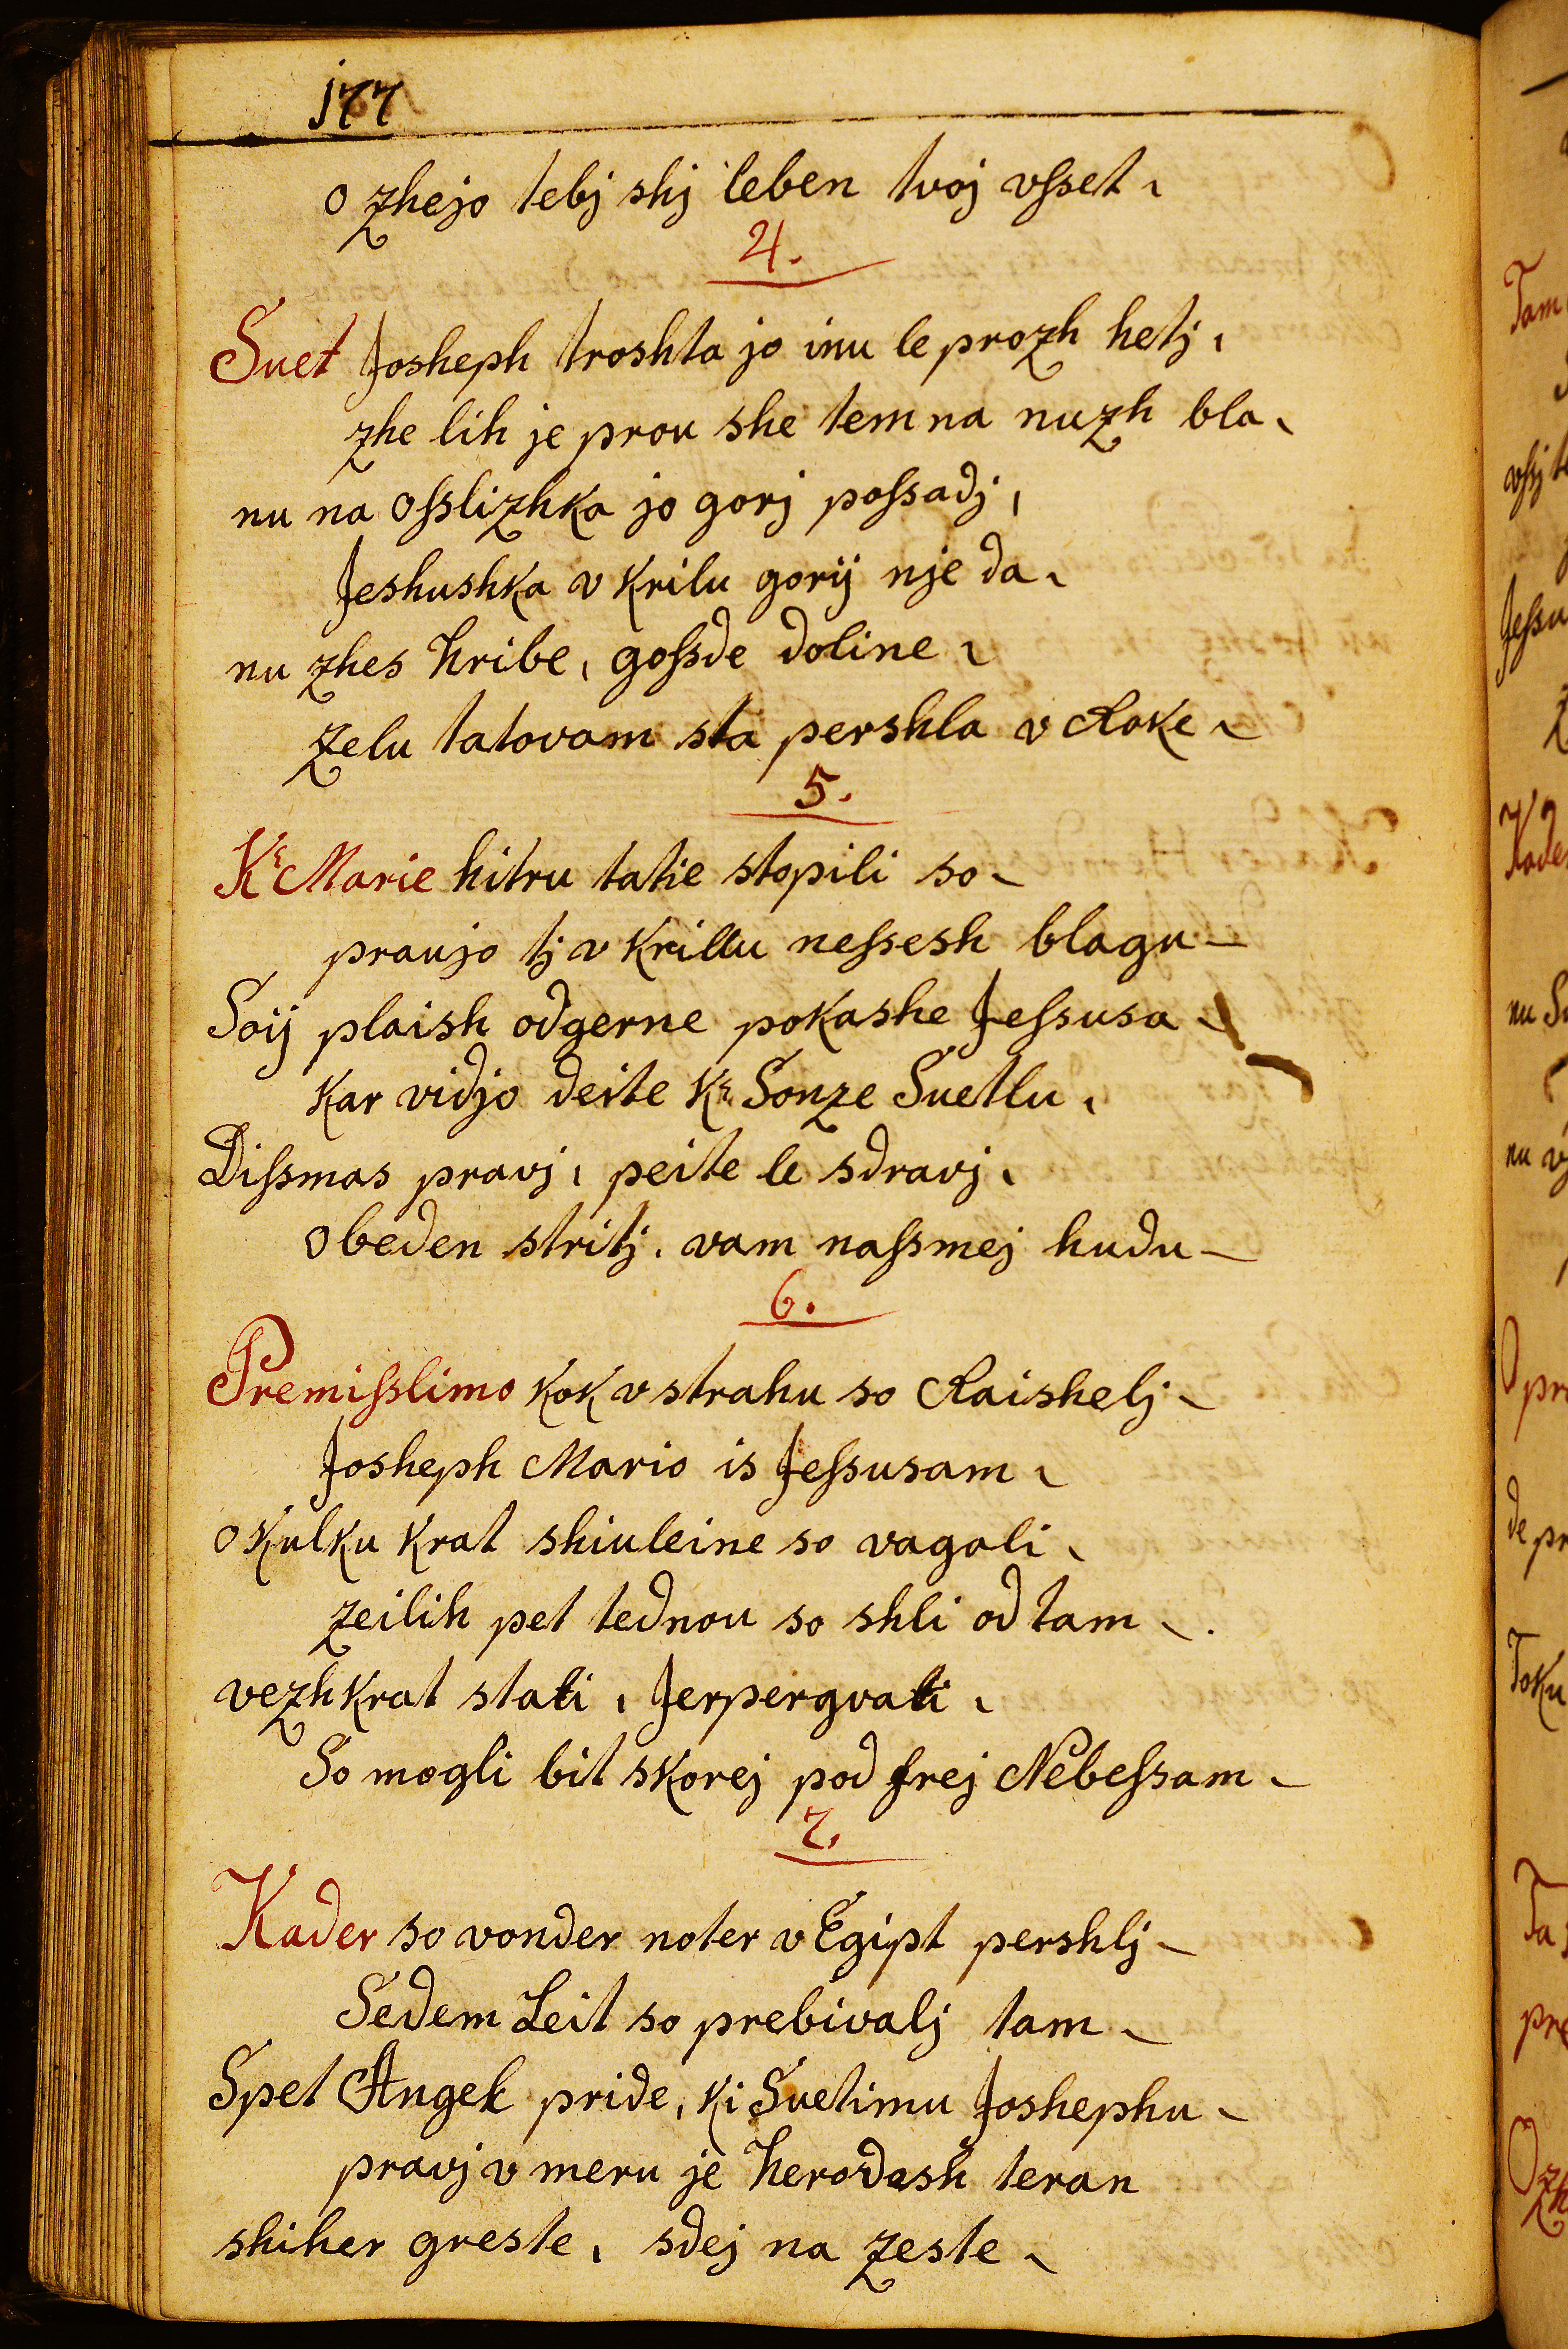 177
o zhejo tebj shj leben tvoj vſset,
4.
Suet Josheph troshta jo inu le prozh hetj,
zhe lih je prou she temna nuzh bla,
nu na Oſslizhka jo gorj poſsadj,
Jeshushka v krilu gorij nje da,
nu zhes hribe, goſsde doline,
zelu tatovam sta pershla v Roke,
5.
K: Marie hitru tatie stopili so,
praujo tj v krillu neſsesh blagu
Soij plaish odgerne pokashe Jeſsusa
kar vidjo deite K: Sonze Suetlu,
Diſsmas pravj, peite le sdravj,
Obeden stritj, vam naſsmej hudu
6.
Premiſslimo kok v strahu so Raishelj
Josheph Mario is Jeſsusam,
O kulku krat shiuleine so vagali,
zeilih pet tednou so shli od tam,
vezhkrat stati, Jerpergvati,
So mogli bit skorej pod frej Nebeſsam
7.
Kader so vonder noter v Egipt pershlj
Sedem Leit so prebivalj tam
Spet Angel pride, ki Suetimu Joshephu
pravj v meru je herodash teran
shiher greste, sdej na zeste